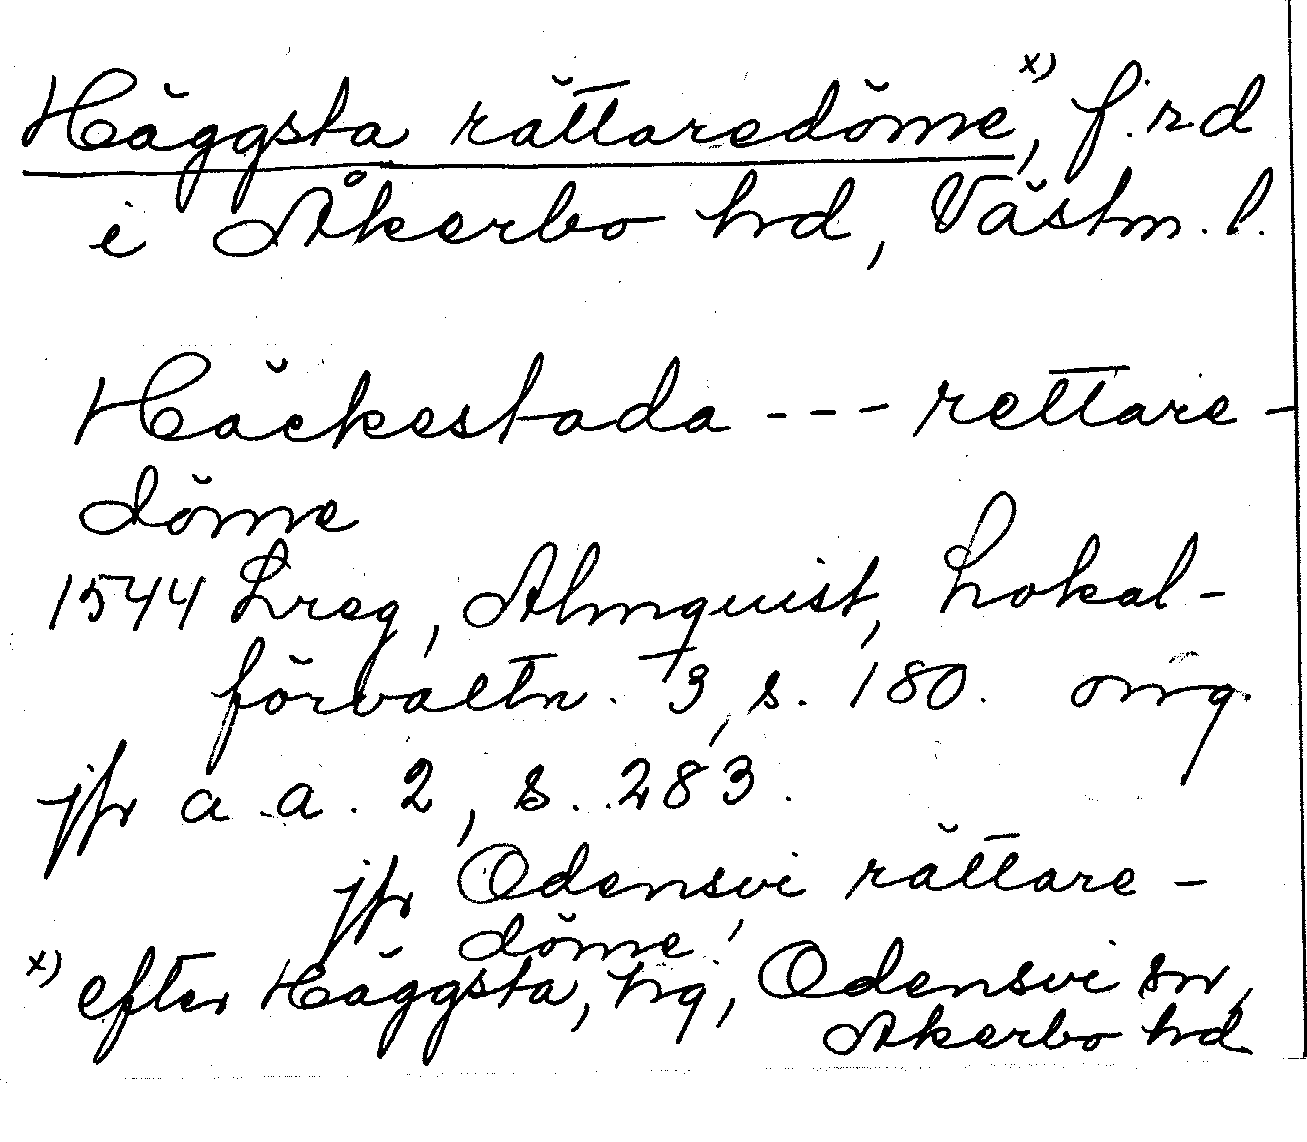 Häggsta rättaredöme x), f.rd
i Åkerbo hrd, Västm. l.
Häckestada --- rettare-
döme
1544 Lreg, Almquist, Lokal-
förvaltn. 3, s. 180. omg.
jfr a.a. 2, s. 283.
jfr Odensvi rättare-
döme!
x) efter Häggsta, hg, Odensvi sn,
Åkerbo hrd